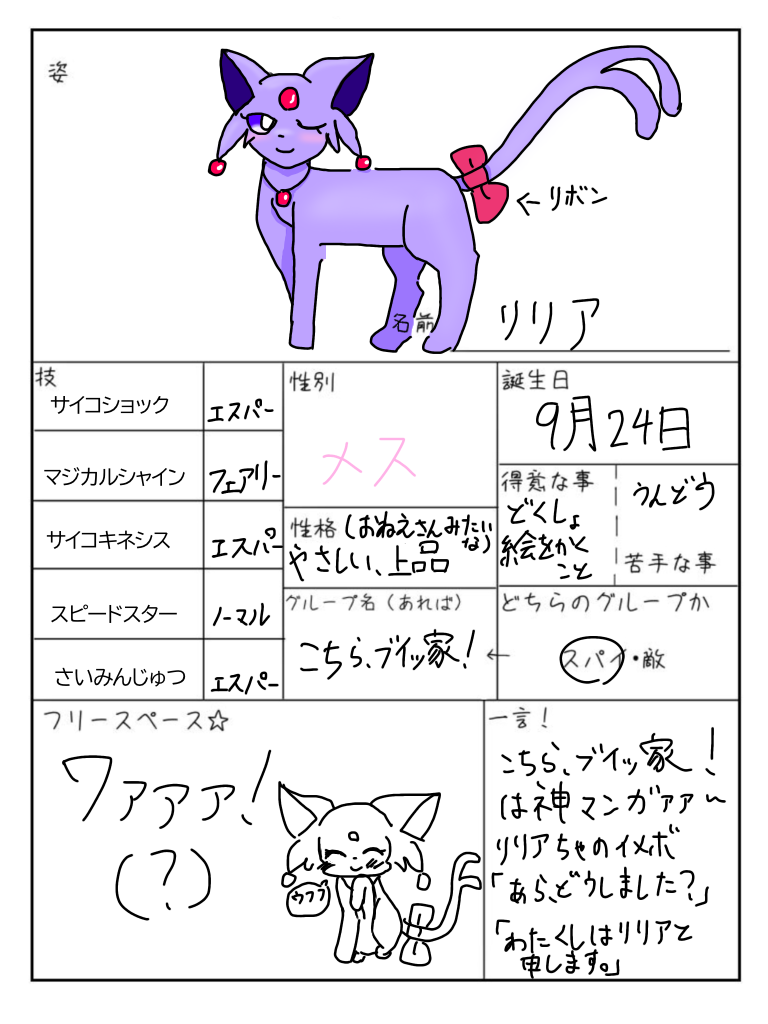 姿
←リボン
名前
リリア
技
サイコショック
エスパー
マジカルシャイン
フェアリー
サイコキネシス
エスパー
スピードスター
ノーマル
さいみんじゅつ
エスパー
性別
メス
誕生日
9月24日
性格(おねえさんみたいな)
やさしい、上品
得意な事
どくしょ
絵をかく
こと
うんどう
苦手な事
グループ名(あれば)
こちら、ブイッ家!
どちらのグループか
←
スパイ・敵
フリースペース☆
ワァァァ!
(?)
ウフフ
一言!
こちら、ブイッ家!
は神マンガァァ～
リリアちゃのイメボ
「あら、どうしました?」
「わたくしはリリアと
申します。」